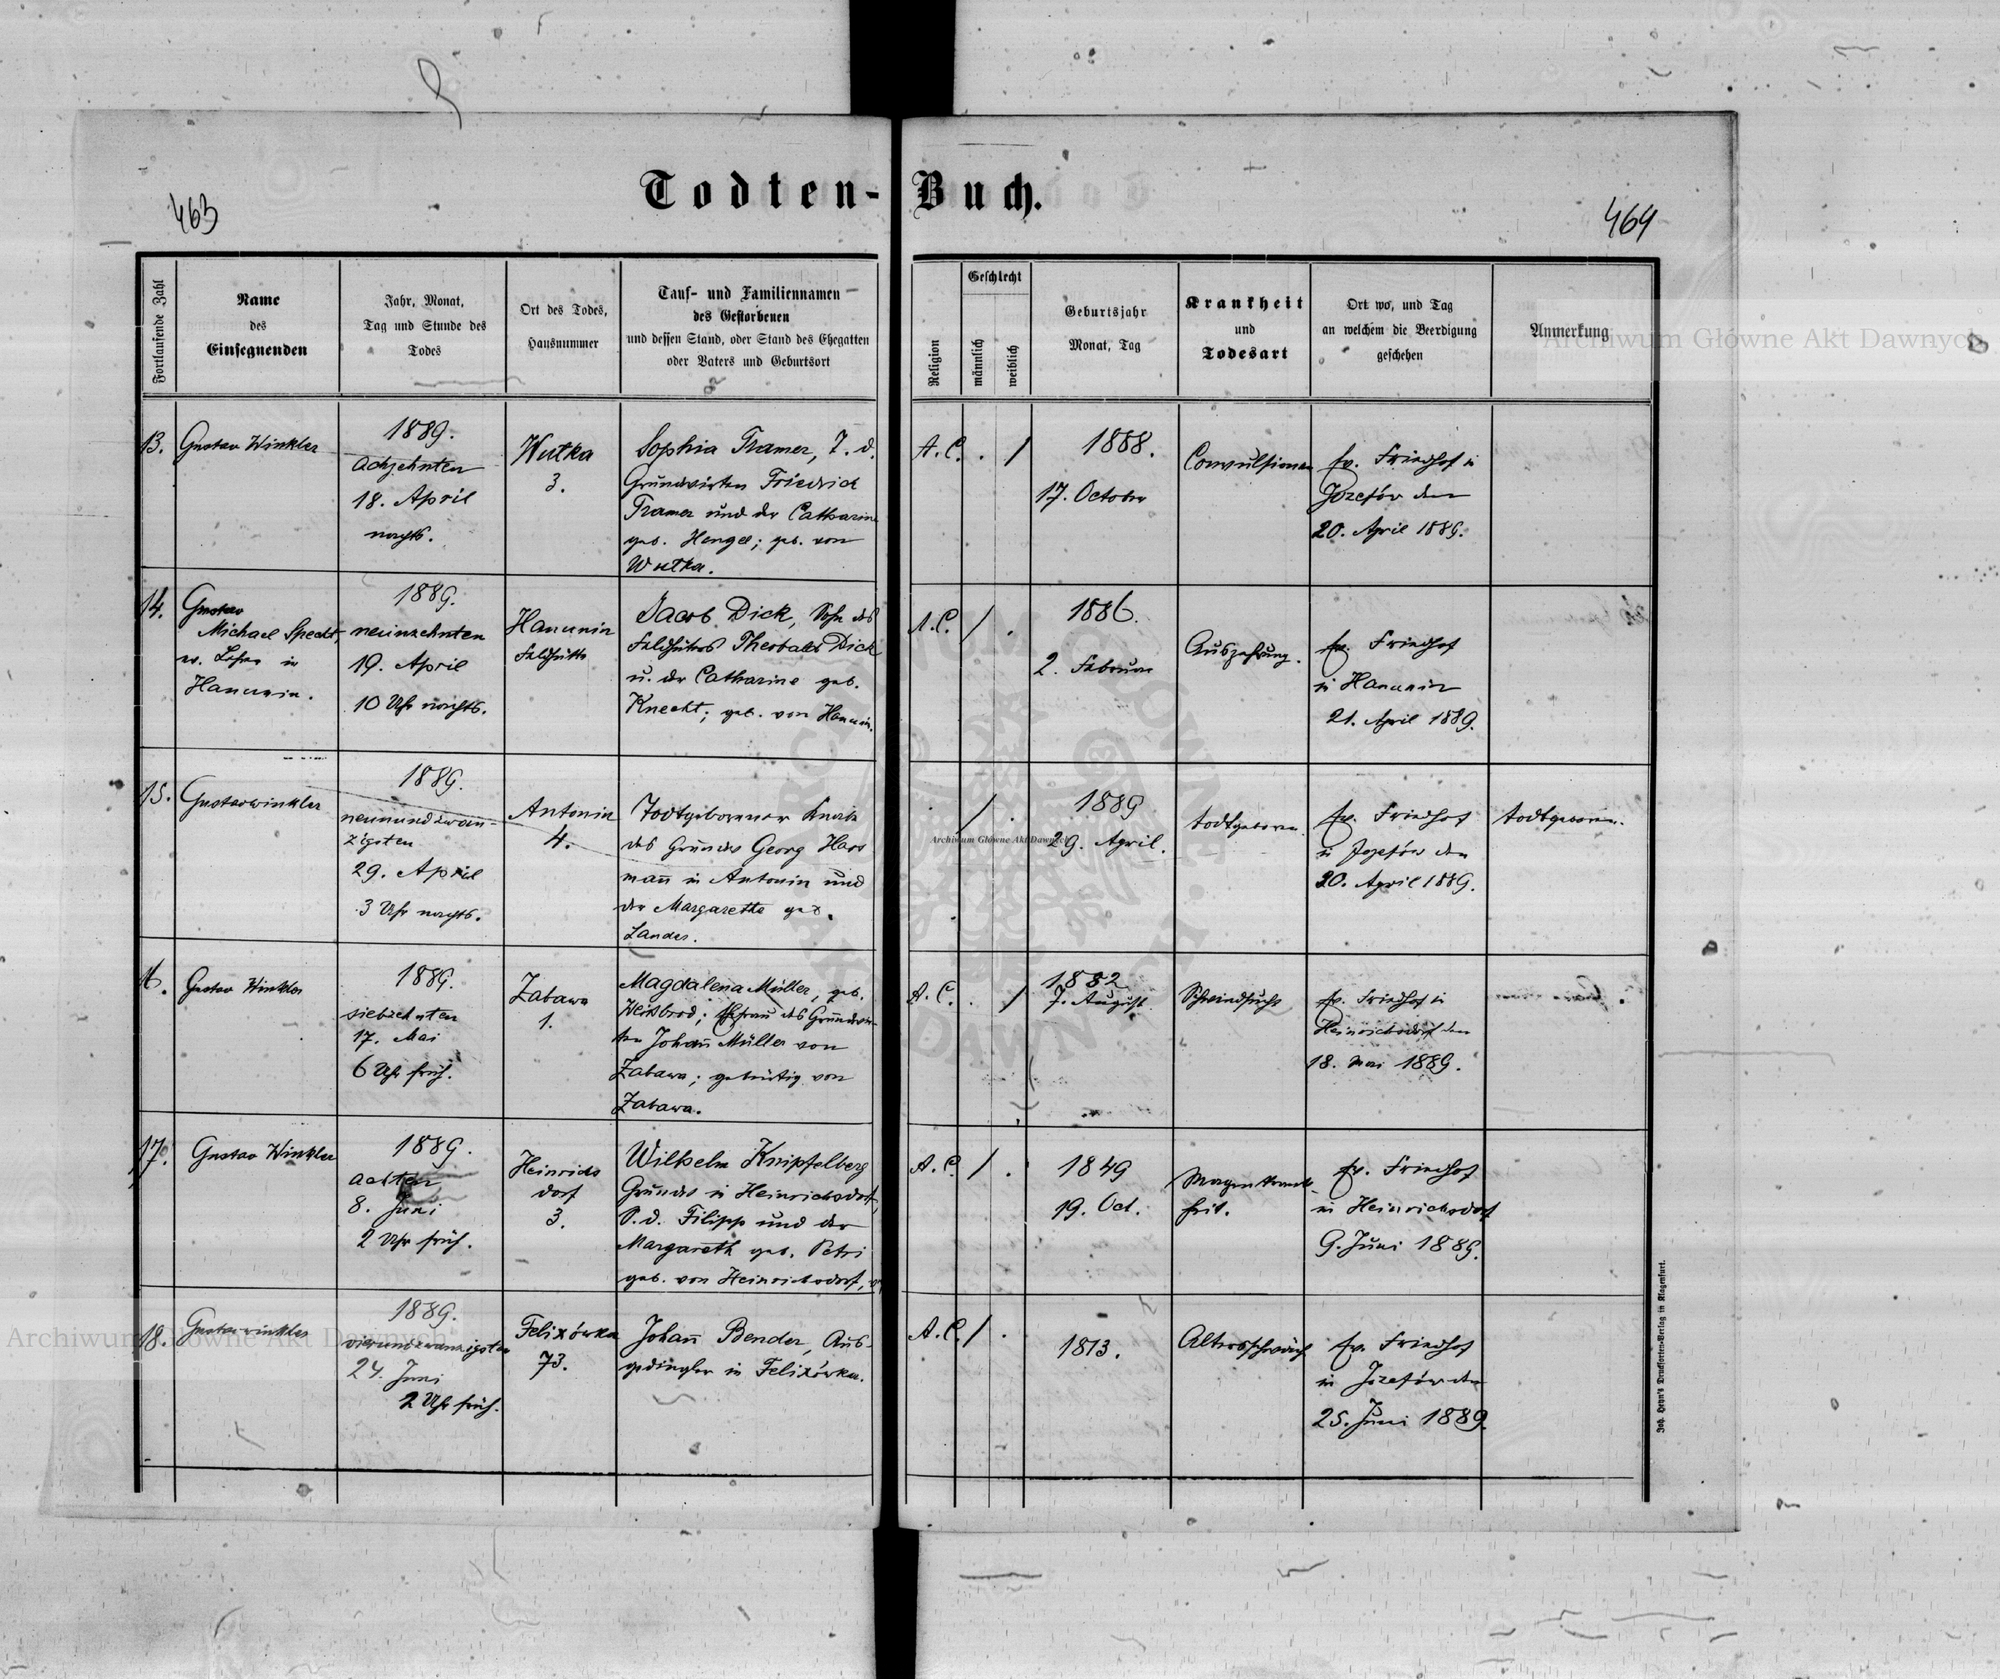 463
Todten-Buch.
464
Fortlaufende Zahl
Name
des
Einsegnenden
Jahr, Monat,
Tag und Stunde des
Todes
Ort des Todes,
Hausnummer
Tauf- und Familiennamen
des Gestorbenen
und dessen Stand, oder Stand des Ehegatten
oder Vaters und Geburtsort
Religion
Geschlecht
männlich
weiblich
Geburtsjahr
Monat, Tag
Krankheit
und
Todesart
Ort wo, und Tag
an welchem die Beerdigung
geschehen
Anmerkung
13.
Gustav Winkler
1889.
achzehnten
18. April
nachts.
Wutka
3.
Sophia Tramer, T. d.
Grundwirten Friedrich
Tramer und der Catharine
geb. Hengel; geb. von
Wutka.
A. C. . /
1888.
17. October
Convulsionen
ev. Friedhof in
Jozefów den
20. April 1889.
14.
Gustav
Michael Specht,
ev. Lehrer in
Hanunin.
1889.
neunzehnten
19. April
10 Uhr nachts.
Hanunin
Feldhütte
Jacob Dick, Sohn des
Feldhüters Theobald Dick
u. der Catharine geb.
Knecht; geb. von Hanunin.
A. C. / .
1886.
2. Februar
Auszehrung.
ev. Friedhof
in Hanunin
21. April 1889.
15.
Gustav Winkler
1889.
neunundzwan-
zigsten
29. April
3 Uhr nachts.
Antonin
4.
Todtgeborener Knabe
des Grundw Georg Har
mann in Antonin und
der Margaretha geb.
Landes.
. / .
1889
29. April.
todtgeboren.
ev. Friedhof
in Jozefów den
30. April 1889.
todtgeboren.
16.
Gustav Winkler
1889.
siebzehnten
17. Mai
6 Uhr früh.
Zabawa
1.
Magdalena Müller, geb.
Weisbrod; Ehefrau des Grundwir-
ten Johann Müller von
Zabawa; gebürtig von
Zabawa.
A. C. . /
1882
7. August
Schwindsucht
ev. Friedhof in
Heinrichsdorf den
18. Mai 1889.
17.
Gustav Winkler
1889.
achten
8. Juni
2 Uhr früh.
Heinrichs
dorf
3.
Wilhelm Knipfelberg
Grundw in Heinrichsdorf,
S. d. Filipp und der
Margareth geb. Petri
geb. von Heinrichsdorf,
A. C. / .
1849
19. Oct.
Magenkrank-
heit.
ev. Friedhof
in Heinrichsdorf
9. Juni 1889.
18.
Gustav Winkler
1889.
vierundzwanzigsten
24. Juni
2 Uhr früh.
Felixówka
73.
Johann Bender, Aus-
gedingler in Felixówka.
A. C. / .
1813.
Altersschwäche
ev. Friedhof
in Jozefów den
25. Juni 1889.
Joh. Heyn's Drucksorten-Verlag in Klagenfurt.
Archiwum Główne Akt Dawnych
Archiwum Główne Akt Dawnych
Archiwum Główne Akt Dawnych